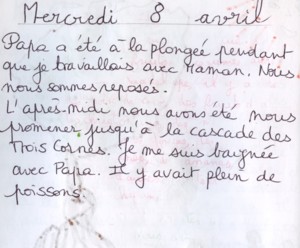 Mercredi 8 avril
Papa a été à la plongée pendant
que je travaillais avec Maman. Nous
nous sommes reposés.
L'après-midi nous avons été nous
promener jusqu'à la cascade des
Trois Cornes. Je me suis baignée
avec Papa. Il y avait plein de
poissons.